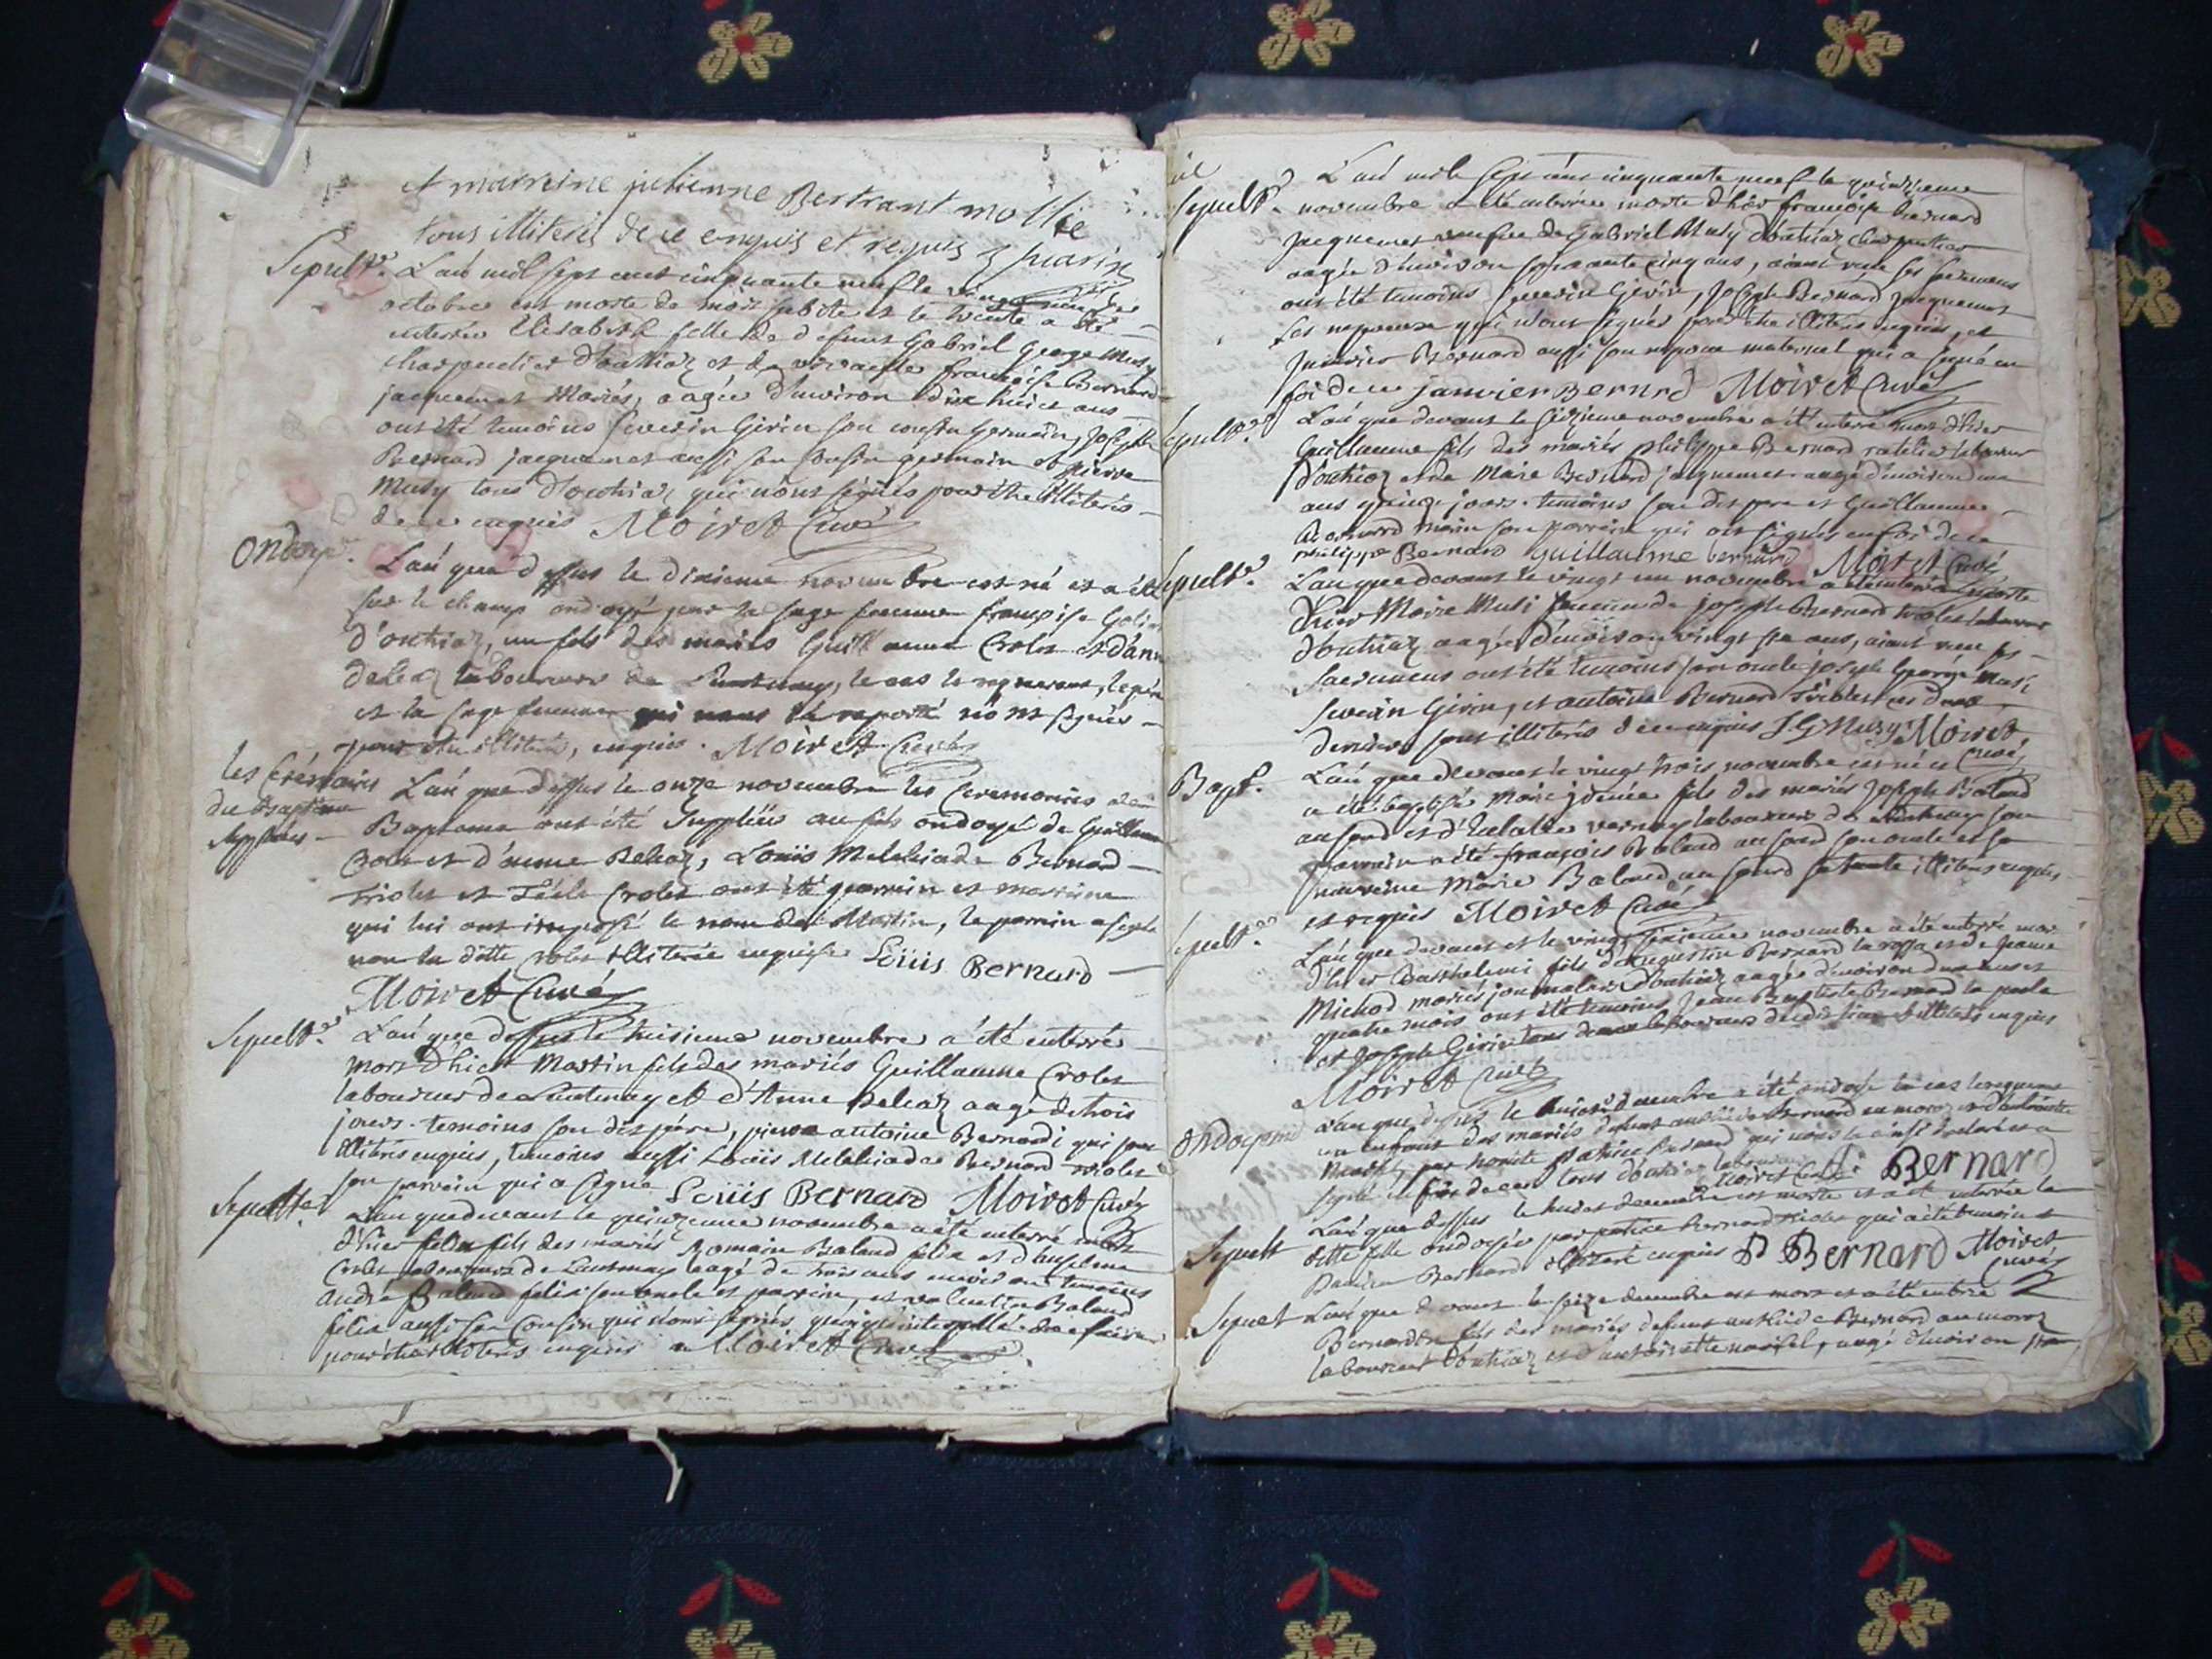 et marreine julienne Bertrant mollie
tous illiterés de ce enquis et requis
Sepult.re L'an mil sept cent cinquante neuf le vingt neuf
octobre est morte de mort subite et le trente a été
enterrée Elisabeth fille de defunt Gabriel George Musy
charpentier d'outriaz et de vivante françoise Bernard
jacquemet Mariés, aagée d'environ dix huict ans
ont été temoins severin Girin son cousin germain, Joseph
Bernard jacquemet aussi son cousin germain et pierre
Musy tous d'outriaz qui n'ont signés pour être illiterés
de ce enquis Moiret Curé
Ondoye. L'an que dessus le dixieme novembre est né et a été
sur le champ ondoyé par la sage femme françoise
d'outriaz, un fils des mariés Guillaume Crolet et d'ann
deleaz laboureur de le cas le requerant, le père
et la sage femme qui nous l'a raporté n'ont signés
pour être illiterés, enquis. Moiret Curé
les Cérémonies
du Baptême
supplées
L'an que dessus le onze novembre les Ceremonies de
Baptême ont été Supplées au fils ondoyé de Guillaume
Crolet et d'anne Deleaz, Louis Melchiade Bernard
triolet et Técle Crolet ont été parrein et marreine
qui lui ont imposé le nom de Martin, le parrein a signé
non la ditte Crolet illiterée enquise Louis Bernard
Moiret Curé
Sepult.re L'an que dessus le treisieme novembre a été enterré
mort d'hier Martin fils des mariés Guillaume Crolet
laboureur de Lantenay et d'Anne Deleaz aagé de trois
jours. temoins son dit père, pierre antoine Bernardi qui sont
illiterés enquis, temoins aussi Louis Melchiade Bernard triolet
son parrein qui a signé Louis Bernard Moiret Curé
Sepultre L'an que devant le quinzieme novembre a été enterré mort
d'hier felix fils des mariés Romain Baland felix et d'anselme
Crolet laboureurs de Lantenay aagé de trois ans environ temoins
andré Baland felix son oncle et parrein, et valentin Baland
felix aussi son Cousin qui n'ont signés
pour être illiterés enquis Moiret Curé
Sepult.re L'an mil sept cent cinquante neuf le quinzieme
novembre a été enterrée morte d'hier françoise Bernard
jacquemet veufve de Gabriel Musy d'outriaz charpentier
aagée d'environ soixante cinq ans, aiant reçu ses sacremens
ont été temoins severin Girin, Joseph Bernard jacquemet
ses nepveux qui n'ont signés pour être illiterés enquis, et
Janvier Bernard aussi son nepveu maternel qui a signé en
foi de ce janvier Bernrd Moiret Curé
Sepult.re L'an que devant le seizieme novembre a été enterré mort d'hier
Guillaume fils des mariés philippe Bernard ratelier laboureur
d'outriaz et de Marie Bernard jacquemet aagé d'environ
ans quinze jours. temoins son dit pere et Guillaume
Bernard marin son parrein qui ont signés en foi de ce
philippe Bernard guillaume bernard Moiret Curé
Sepult.re L'an que devant le vingt un novembre a été enterrée morte
d'hier Marie Musi femme de joseph Bernard triolet laboureur
d'outriaz aagée d'environ vingt six ans, aiant reçu ses
Sacremens ont été temoins son oncle joseph George Musi
Severin Girin, et antoine Bernard ces deux
derniers sont illiterés de ce enquis J.G Musy Moiret
Curé
Bapt. L'an que devant le vingt trois novembre est né et
a été baptisé Marie fils des mariés Joseph Baland
au sourd et d'Eulalie vernay laboureur de Lantenay son
parrein a été françois Baland au sourd son oncle et sa
marreine Marie Baland au sourd sa tante illiterés enquis
et requis Moiret Curé
Sepult.re L'an que devant et le vingt novembre a été enterré mort
d'hier Barthelemi fils d'augustin Bernard et de
Michod mariés journaliers d'outriaz aagé d'environ deux ans et
quatre mois ont été temoins Jean Baptiste Bernard
et Joseph Girin tous deux laboureurs dudit lieu illiterés enquis
Moiret Curé
L'an que dessus le decembre a été ondoyé le cas le requerant
un enfant des mariés defunt Bernard au moroz et d'antoinette
par honnete patrice Bernard qui nous l'a ainsi declaré et a
signé en foi de ce tous d'outriaz Moiret Curé P. Bernard
Sepult L'an que dessus le huict decembre est morte et a été enterrée la
ditte fille ondoyée par patrice Bernard triolet qui a été temoin et
Bernard illiteré enquis P Bernard Moiret
Curé
Sepult L'an que devant le seize decembre est mort et a été enterré
Bernardin fils des mariés defunt Bernard au moroz
laboureur d'outriaz et d'antoinette aagé d'environ